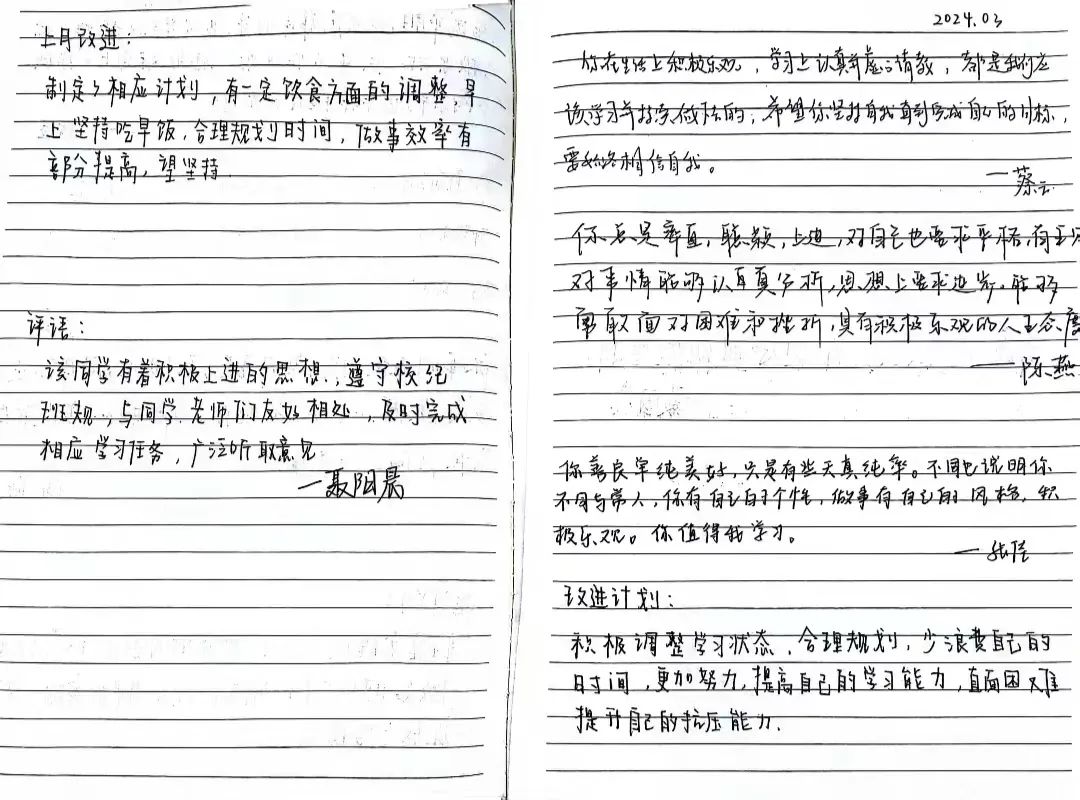 上月改进:
制定了相应计划,有一定饮食方面的调整,早
上坚持吃早饭,合理规划时间,做事效率有
部分提高,望坚持
评语:
该同学有着积极上进的思想,遵守校纪
班规,与同学老师们友好相处,及时完成
相应学习任务,广泛听取意见
—聂阳晨
2024.03
你在生活上积极乐观,学习上认真并虚心请教,都是我们应
该学习并持续做法的,希望你坚持自我直到完成自己的目标,
要始终相信自我。
—蔡云
你总是率直,聪颖,上进,对自己也要求严格,有主见
对事情能够认真真分析,思想上要求进步。能够
勇敢面对困难和挫折,具有积极乐观的人生态度
—陈燕
你善良单纯美好,只是有些天真纯率。不同也说明你
不同与常人,你有自己的个性,做事有自己的风格,积
极乐观。你值得我学习。
—张
改进计划:
积极调整学习状态,合理规划,少浪费自己的
时间,更加努力,提高自己的学习能力,直面困难
提升自己的抗压能力.